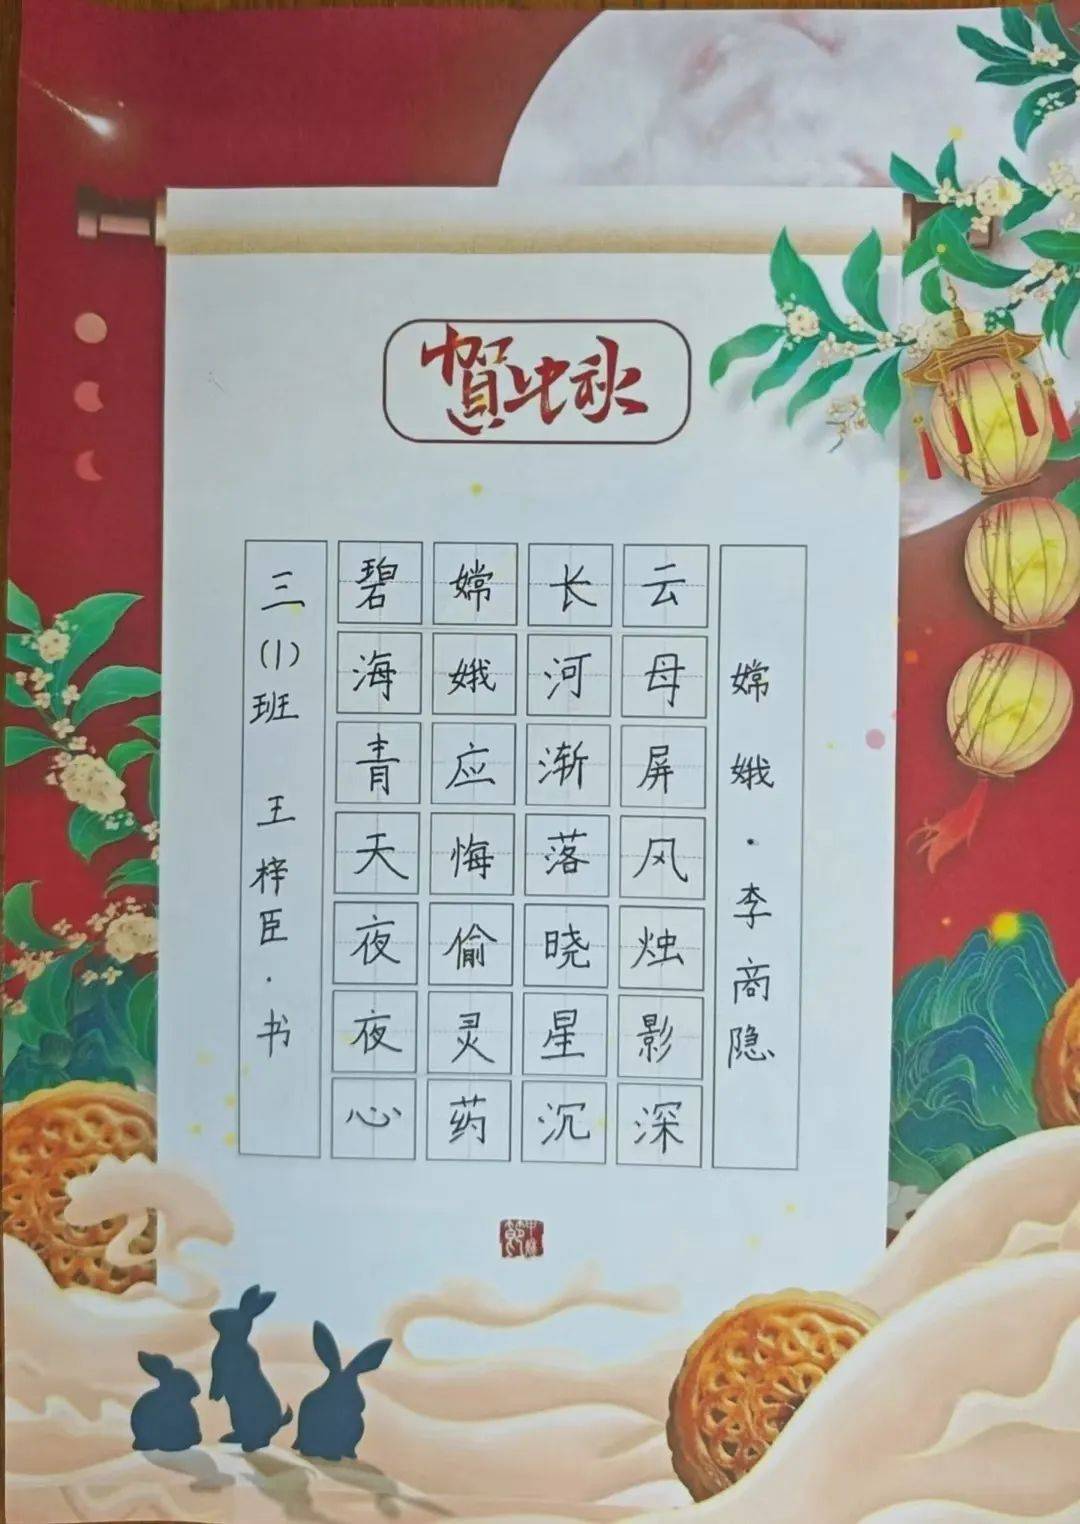 賀中秋
嫦娥·李商隐
云母屏风烛影深
长河渐落晓星沉
嫦娥应悔偷灵药
碧海青天夜夜心
三(1)班 王梓臣·书